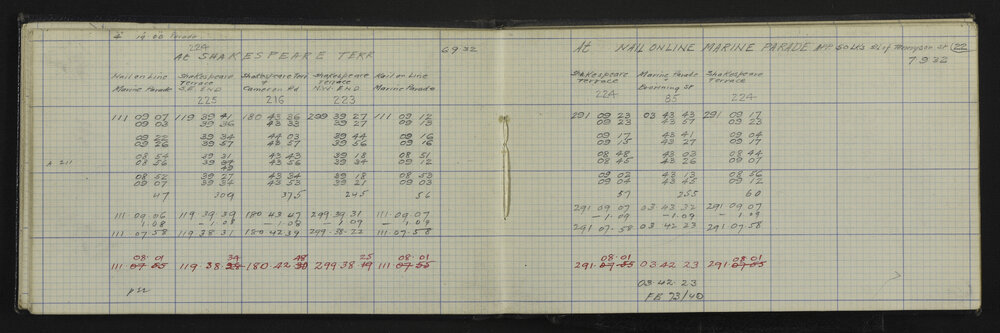 224
At SHAKESPEARE TERR 6 9 32
Nail on Line Shakespeare Shakespeare Terr Shakespeare Nail on Line
Terrace Terrace
Marine Parade S.E. END Cameron Rd N.W. END Marine Parade
225 216 223
111 09 07 119 39 41 180 43 36 299 39 27 111 09 12
09 03 39 36 43 33 39 27 09 13
09 22 39 34 44 03 39 44 09 16
09 26 39 57 43 57 39 56 09 16
08 54 39 31 43 43 39 18 08 51
08 56 43 56 39 34 09 12
08 52 39 27 43 34 39 18 08 53
09 07 39 34 43 53 39 21 09 03
47 309 375 245 56
111 09.06 119 39 39 180 43 47 299.39.31 111.09.07
1.08 - 1.08 - 1.08 - 1.09 - 1.09
111.07.58 119 38 31 180 42 39 299.38.22 111.07.58
08.01 34 48 25 08.01
111 07.55 119.38. 180.42. 299 38 19 111 07.55
A 211
At NAIL ON LINE MARINE PARADE St 22
7 9 32
Shakespeare Marine Parade Shakespeare
Terrace Terrace
Browning St
224 85 224
291 09 23 03 43 43 291 09 17
09 23 43 57 09 23
09 17 43 41 09 04
09 15 43 27 09 17
08 48 43 03 08 44
08 45 43 26 09 07
09 03 43 13 08 56
09 04 43 45 09 12
57 255 60
291 09 07 03 43 32 291 09.07
- 1.09 - 1.09 - 1.09
291 07.58 03 42 23 291 07.58
08.01 08.01
291.07.55 03 42 23 291 07.55
03.42.23
FB 73/40